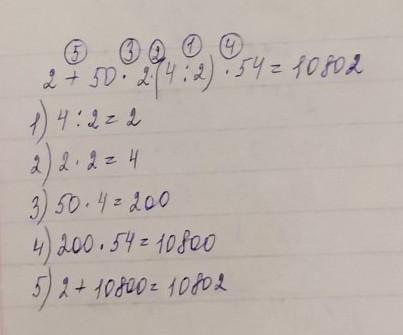 ⑤ ③ ② ① ④
2 + 50 · 2 · (4 : 2) · 54 = 10802
1) 4 : 2 = 2
2) 2 · 2 = 4
3) 50 · 4 = 200
4) 200 · 54 = 10800
5) 2 + 10800 = 10802